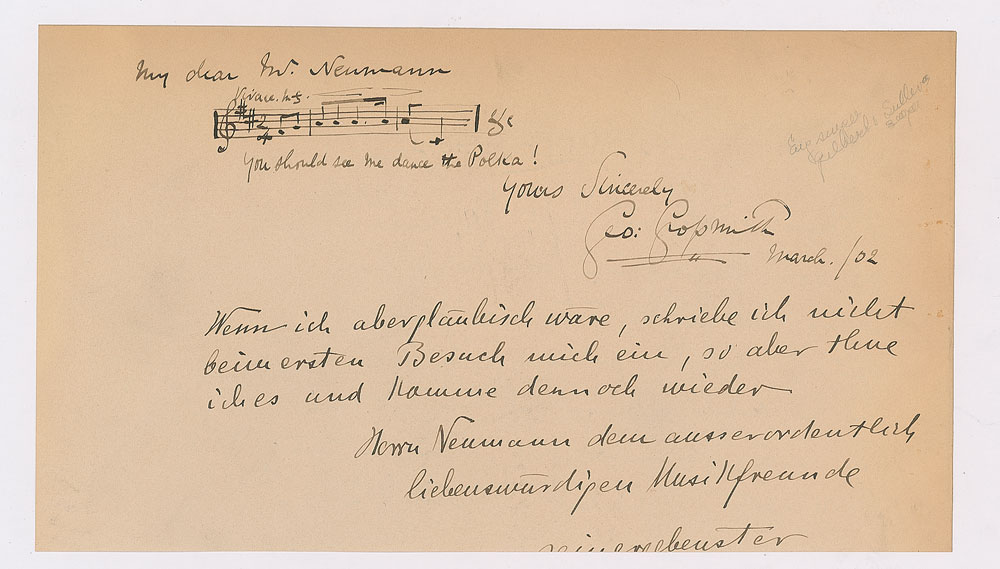 My dear Mr. Neumann
Vivace. mf.
2
4
&c
You should see me dance the Polka!
Yours Sincerely
Geo: Großmith
March. /02
Eng
Gilbert & Sullivan
Wenn ich abergläubisch wäre, schriebe ich nicht
beim ersten Besuch mich ein, so aber thue
ich es und komme dennoch wieder
Herrn Neumann dem ausserordentlich
liebenswürdigen Musikfreunde
sein ergebenster